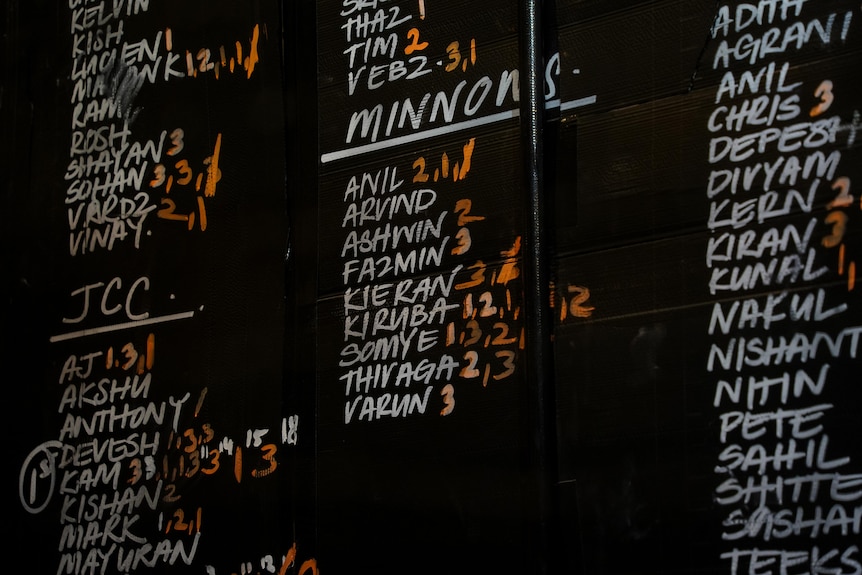 KELVIN
KISH
LUCIEN 1
1,2,1,1,1
RAM
ROSH
SHAYAN 3
SOHAN 3,3,
VARDZ 2,1
VINAY.
JCC.
AJ 1,3,1
AKSHU
ANTHONY 1
DEVESH 1,3,3
1st KAM
KISHAN 2
MARK 1,2,1
MAYURAN
THAZ 1
TIM 2
VEBZ. 3,1
MINNOWS.
ANIL 2,1,1
ARVIND
ASHWIN 2
FAZMIN 3
KIERAN 3,1
KIRUBA 1,2,1
SOMYE 1,3,2
THIVAGA 2,3
VARUN 3
ADITH
AGRANI
ANIL
CHRIS 3
DEPESH
DIVYAM
KERN 2
KIRAN 3
KUNAL 1,1
NAKUL
NISHANT
NITIN
PETE
SAHIL
SHITTE
TEEKS